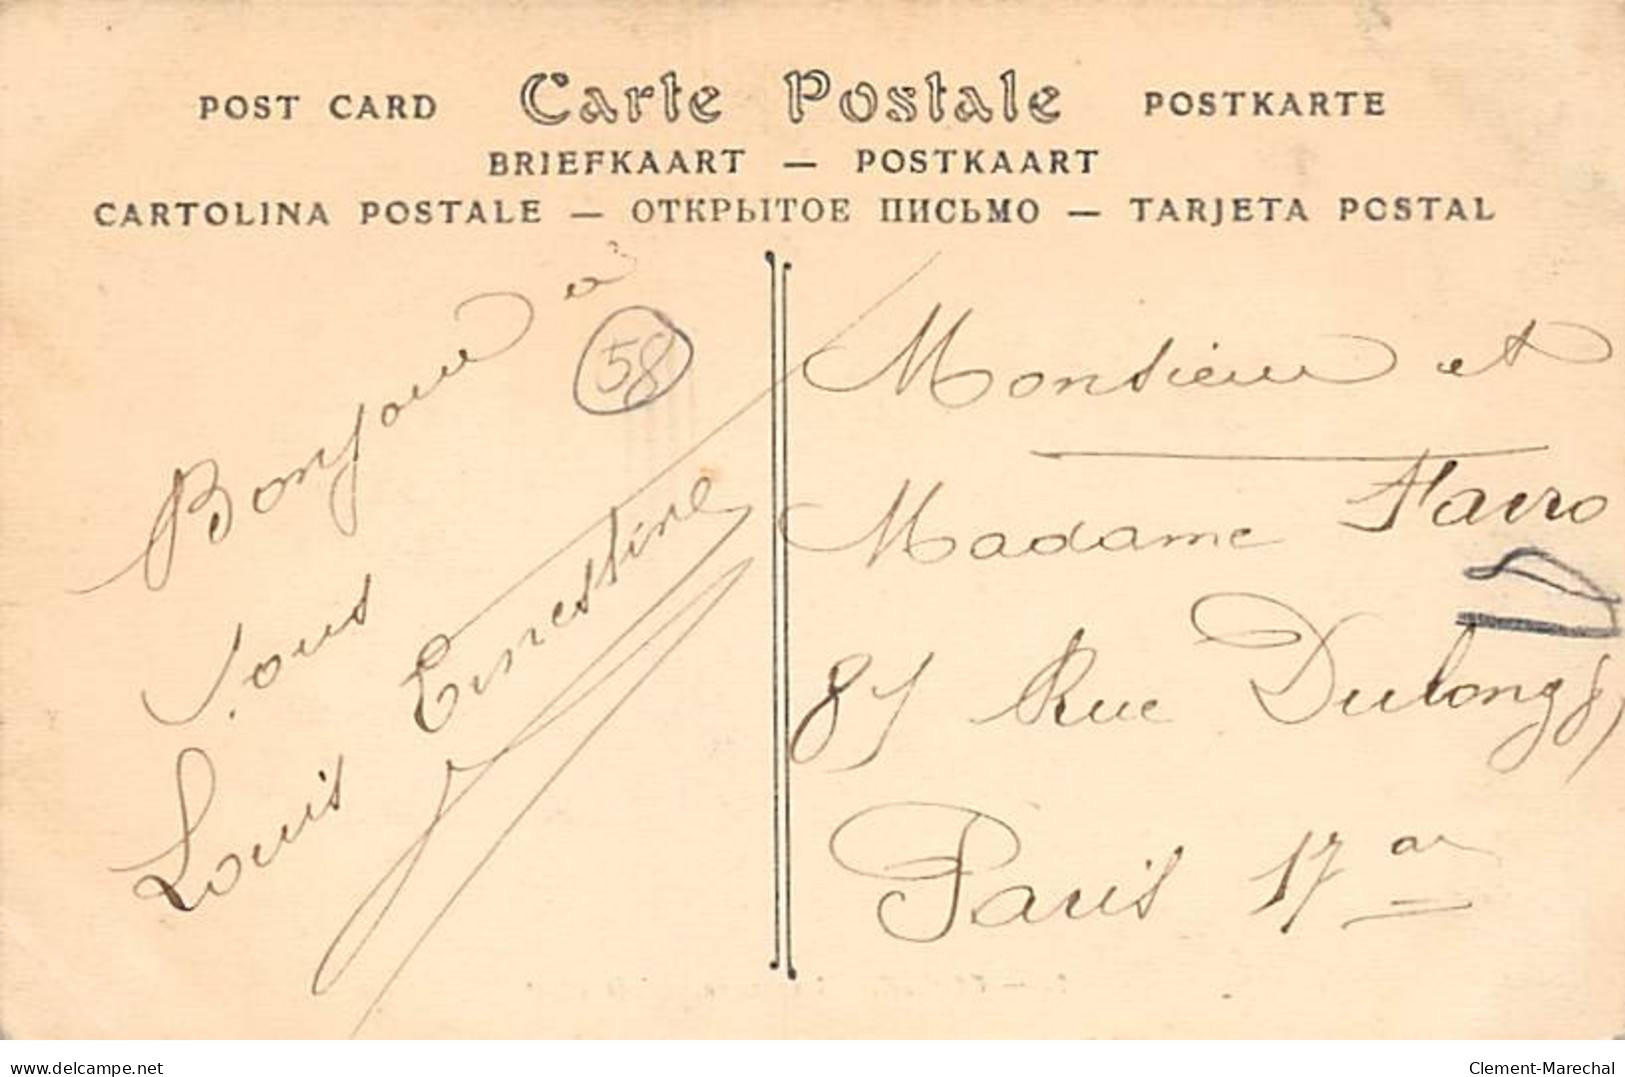 POST CARD Carte Postale POSTKARTE
BRIEFKAART — POSTKAART
CARTOLINA POSTALE — ОТКРЫТОЕ ПИСЬМО — TARJETA POSTAL
Bonjour à
vous
Louis Ernestine
58
Monsieur et
Madame Favro
87 Rue Dulong 87
Paris 17 ar
delcampe.net
Clement-Marechal